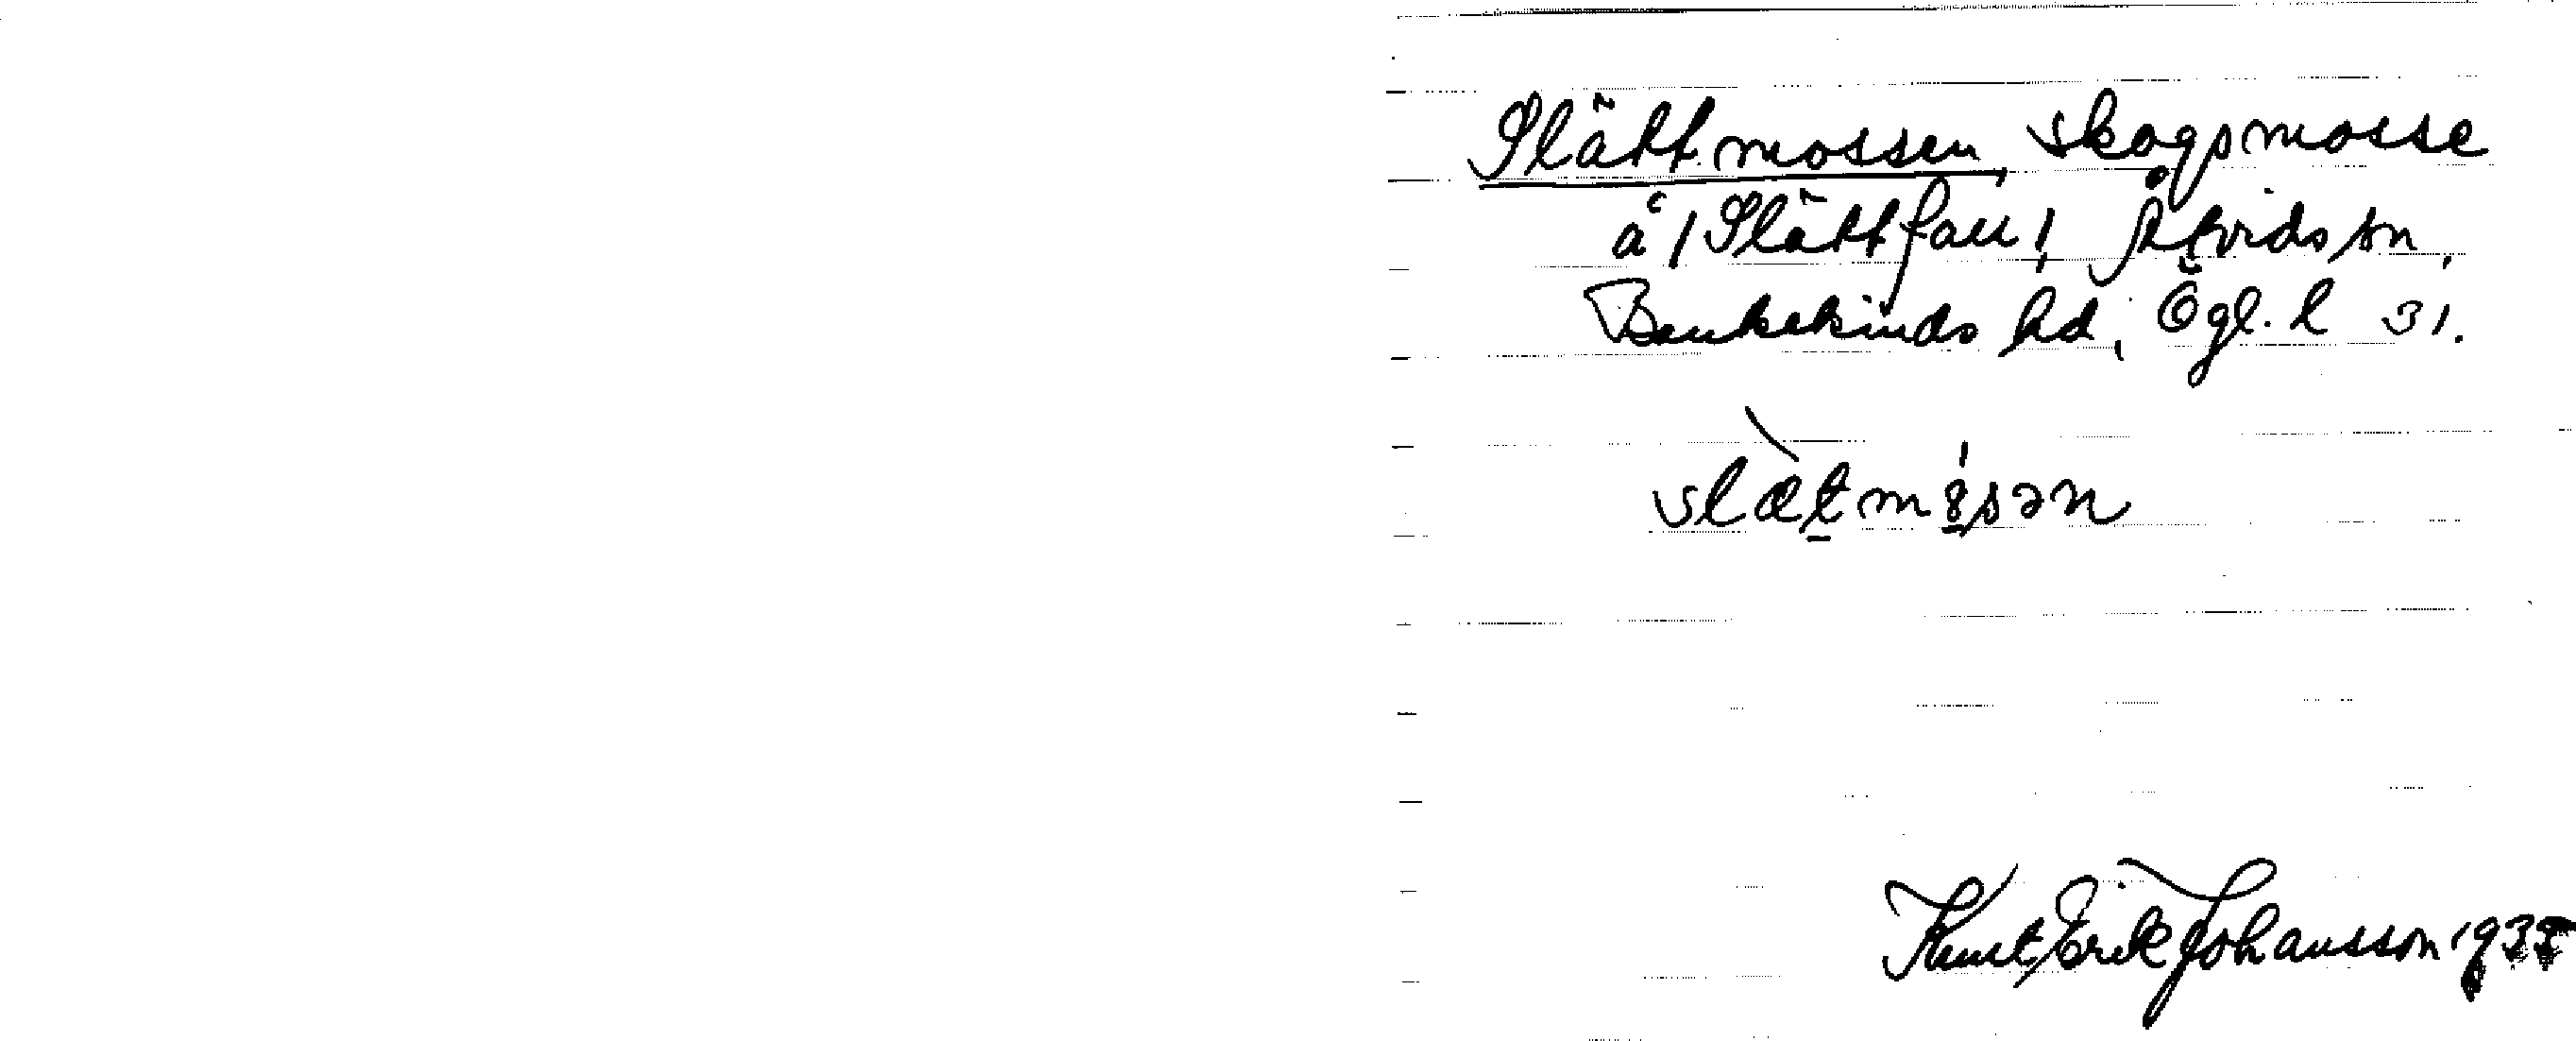 Slättmossen, skogsmosse
å /Slättfall/, Åtvids sn,
Bankekinds hd, Ögl. l 31.
slætmȣsən
Knut Erik Johansson